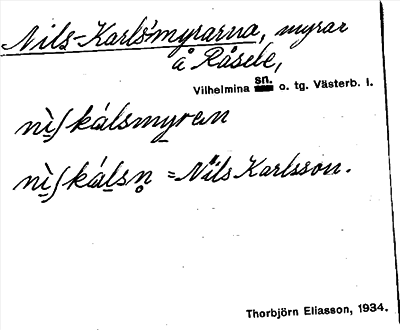 Nils-Karls'myrarna, myrar
å Råsele,
Vilhelmina sn. o. tg. Västerb. l.
nìʃkálsmyren
nìʃkálsn̥ = Nils Karlsson.
Thorbjörn Eliasson, 1934.